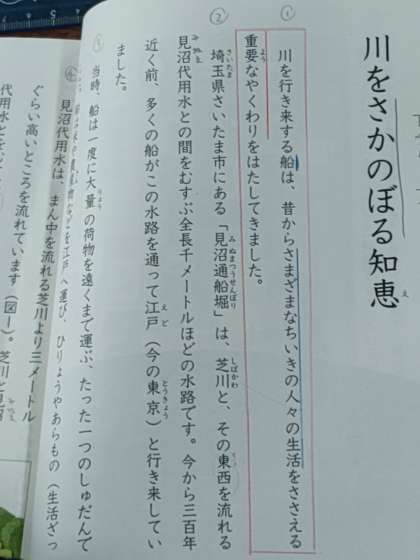 川をさかのぼる知恵
え
①
川を行き来する船は、昔からさまざまなちいきの人々の生活をささえる
重要なやくわりをはたしてきました。
よう
②
埼玉県さいたま市にある「見沼通船堀」は、芝川と、その東西を流れる
さいたま
みぬまつうせんぼり
しばかわ
見沼代用水との間をむすぶ全長千メートルほどの水路です。今から三百年
近く前、多くの船がこの水路を通って江戸（今の東京）と行き来してい
えど
とうきょう
ました。
当時、船は一度に大量の荷物を遠くまで運ぶ、たった一つのしゅだんで
りょう
江戸へ運び、ひりょうやあらもの（生活ざっ
見沼代用水は、まん中を流れる芝川より三メートル
ぐらい高いところを流れています（図一）。芝川と見沼